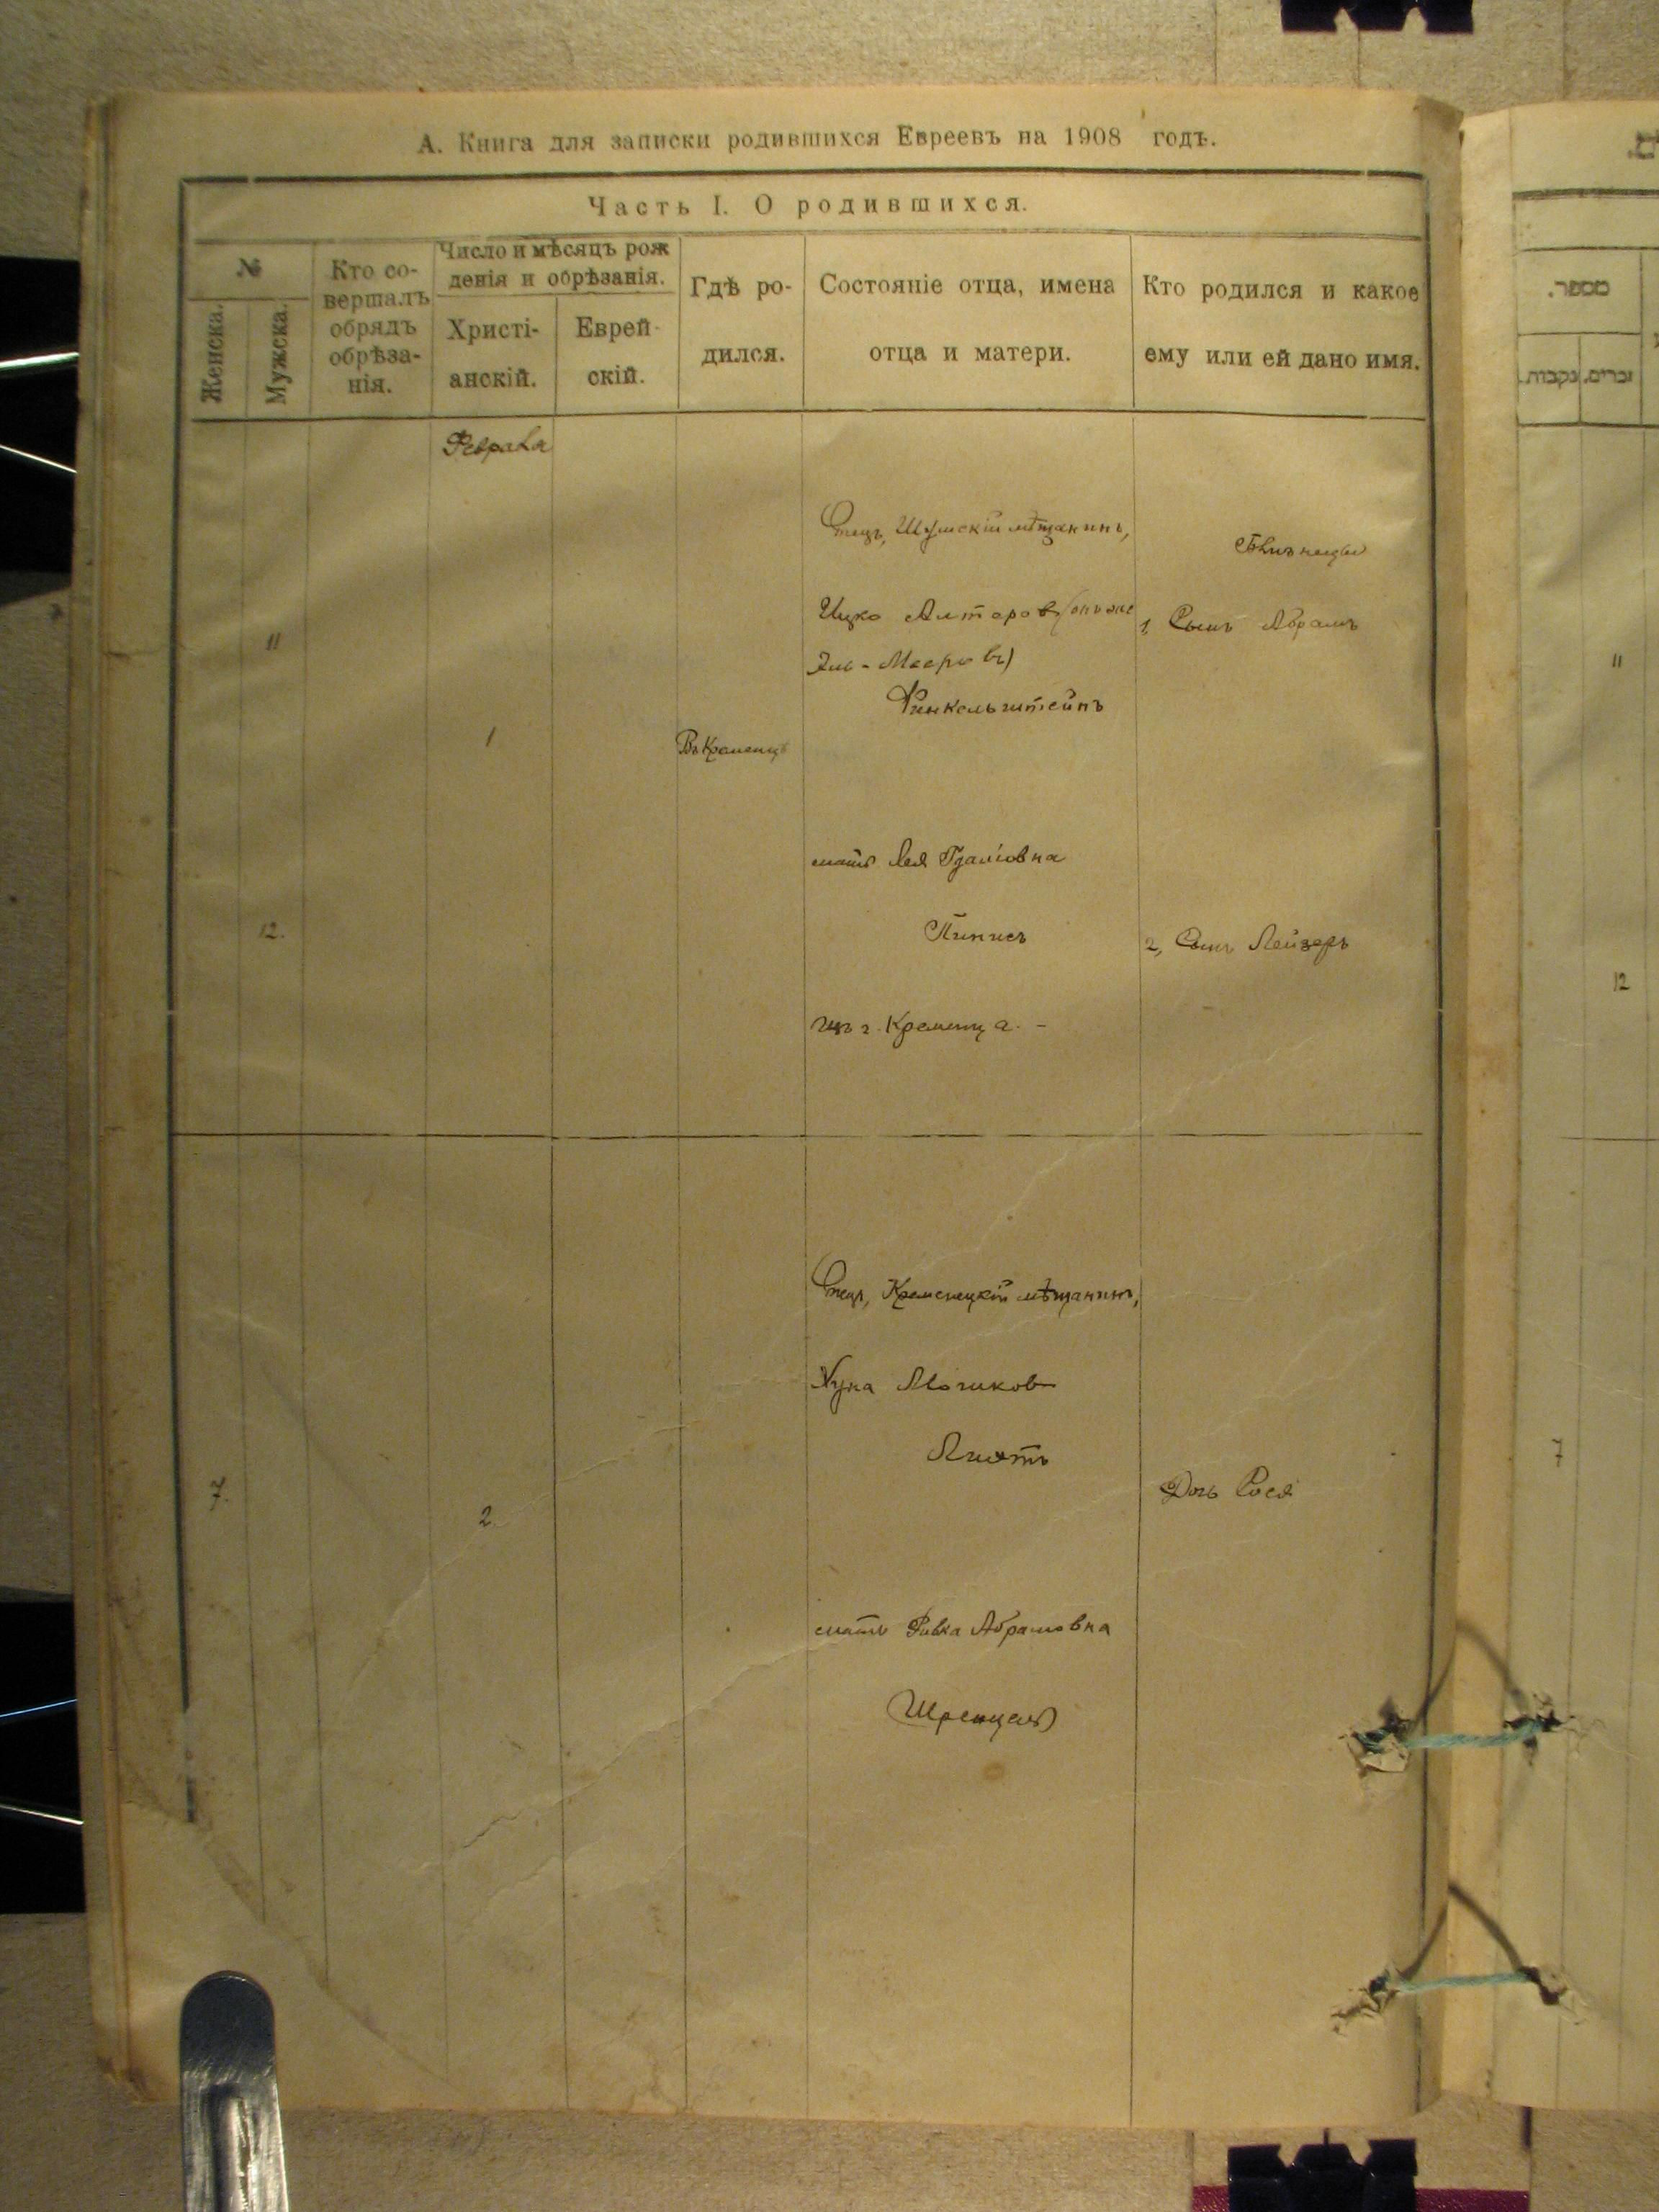 А. Книга для записки родившихся Евреевъ на 1908 годъ.
Часть I. О родившихся.
№
Женска.
Мужска.
Кто со-
вершалъ
обрядъ
обрѣза-
нія.
Число и мѣсяцъ рож
денія и обрѣзанія.
Христі-
анскій.
Еврей-
скій.
Гдѣ ро-
дился.
Состояніе отца, имена
отца и матери.
Кто родился и какое
ему или ей дано имя.
Февраля
Отецъ, Шумскій мѣщанинъ,
Близнецы
Ицко Алтеров (онъ же
1, Сынъ Абрамъ
11
Эль-Мееровъ)
Финкельштейнъ
1
Въ Кременцѣ
мать Лея Гдаліовна
12.
Пиписъ
2, Сынъ Лейзеръ
изъ г. Кременца. -
Отецъ, Кременецкій мѣщанинъ,
Хуна
7.
2.
Дочь Рося
мать Ривка Абрамовна
Шренцель
מספר.
זכרים.
נקבות.
11
12
7